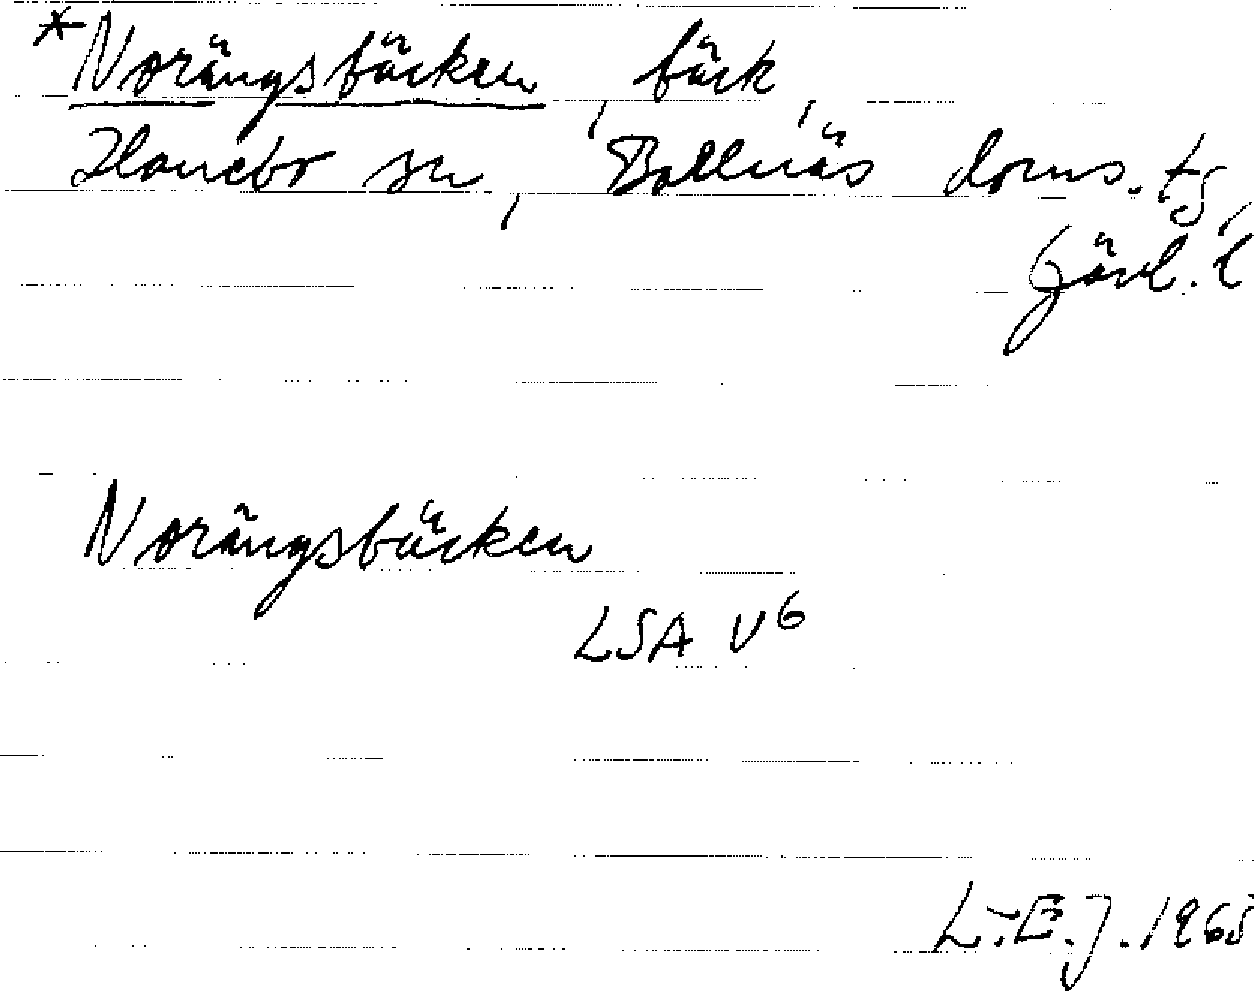 *Norängsbäcken, bäck,
Hanebo sn, Bollnäs doms. tg,
Gävl. l
Norängsbäcken
LSA V6
L.E.J. 1965